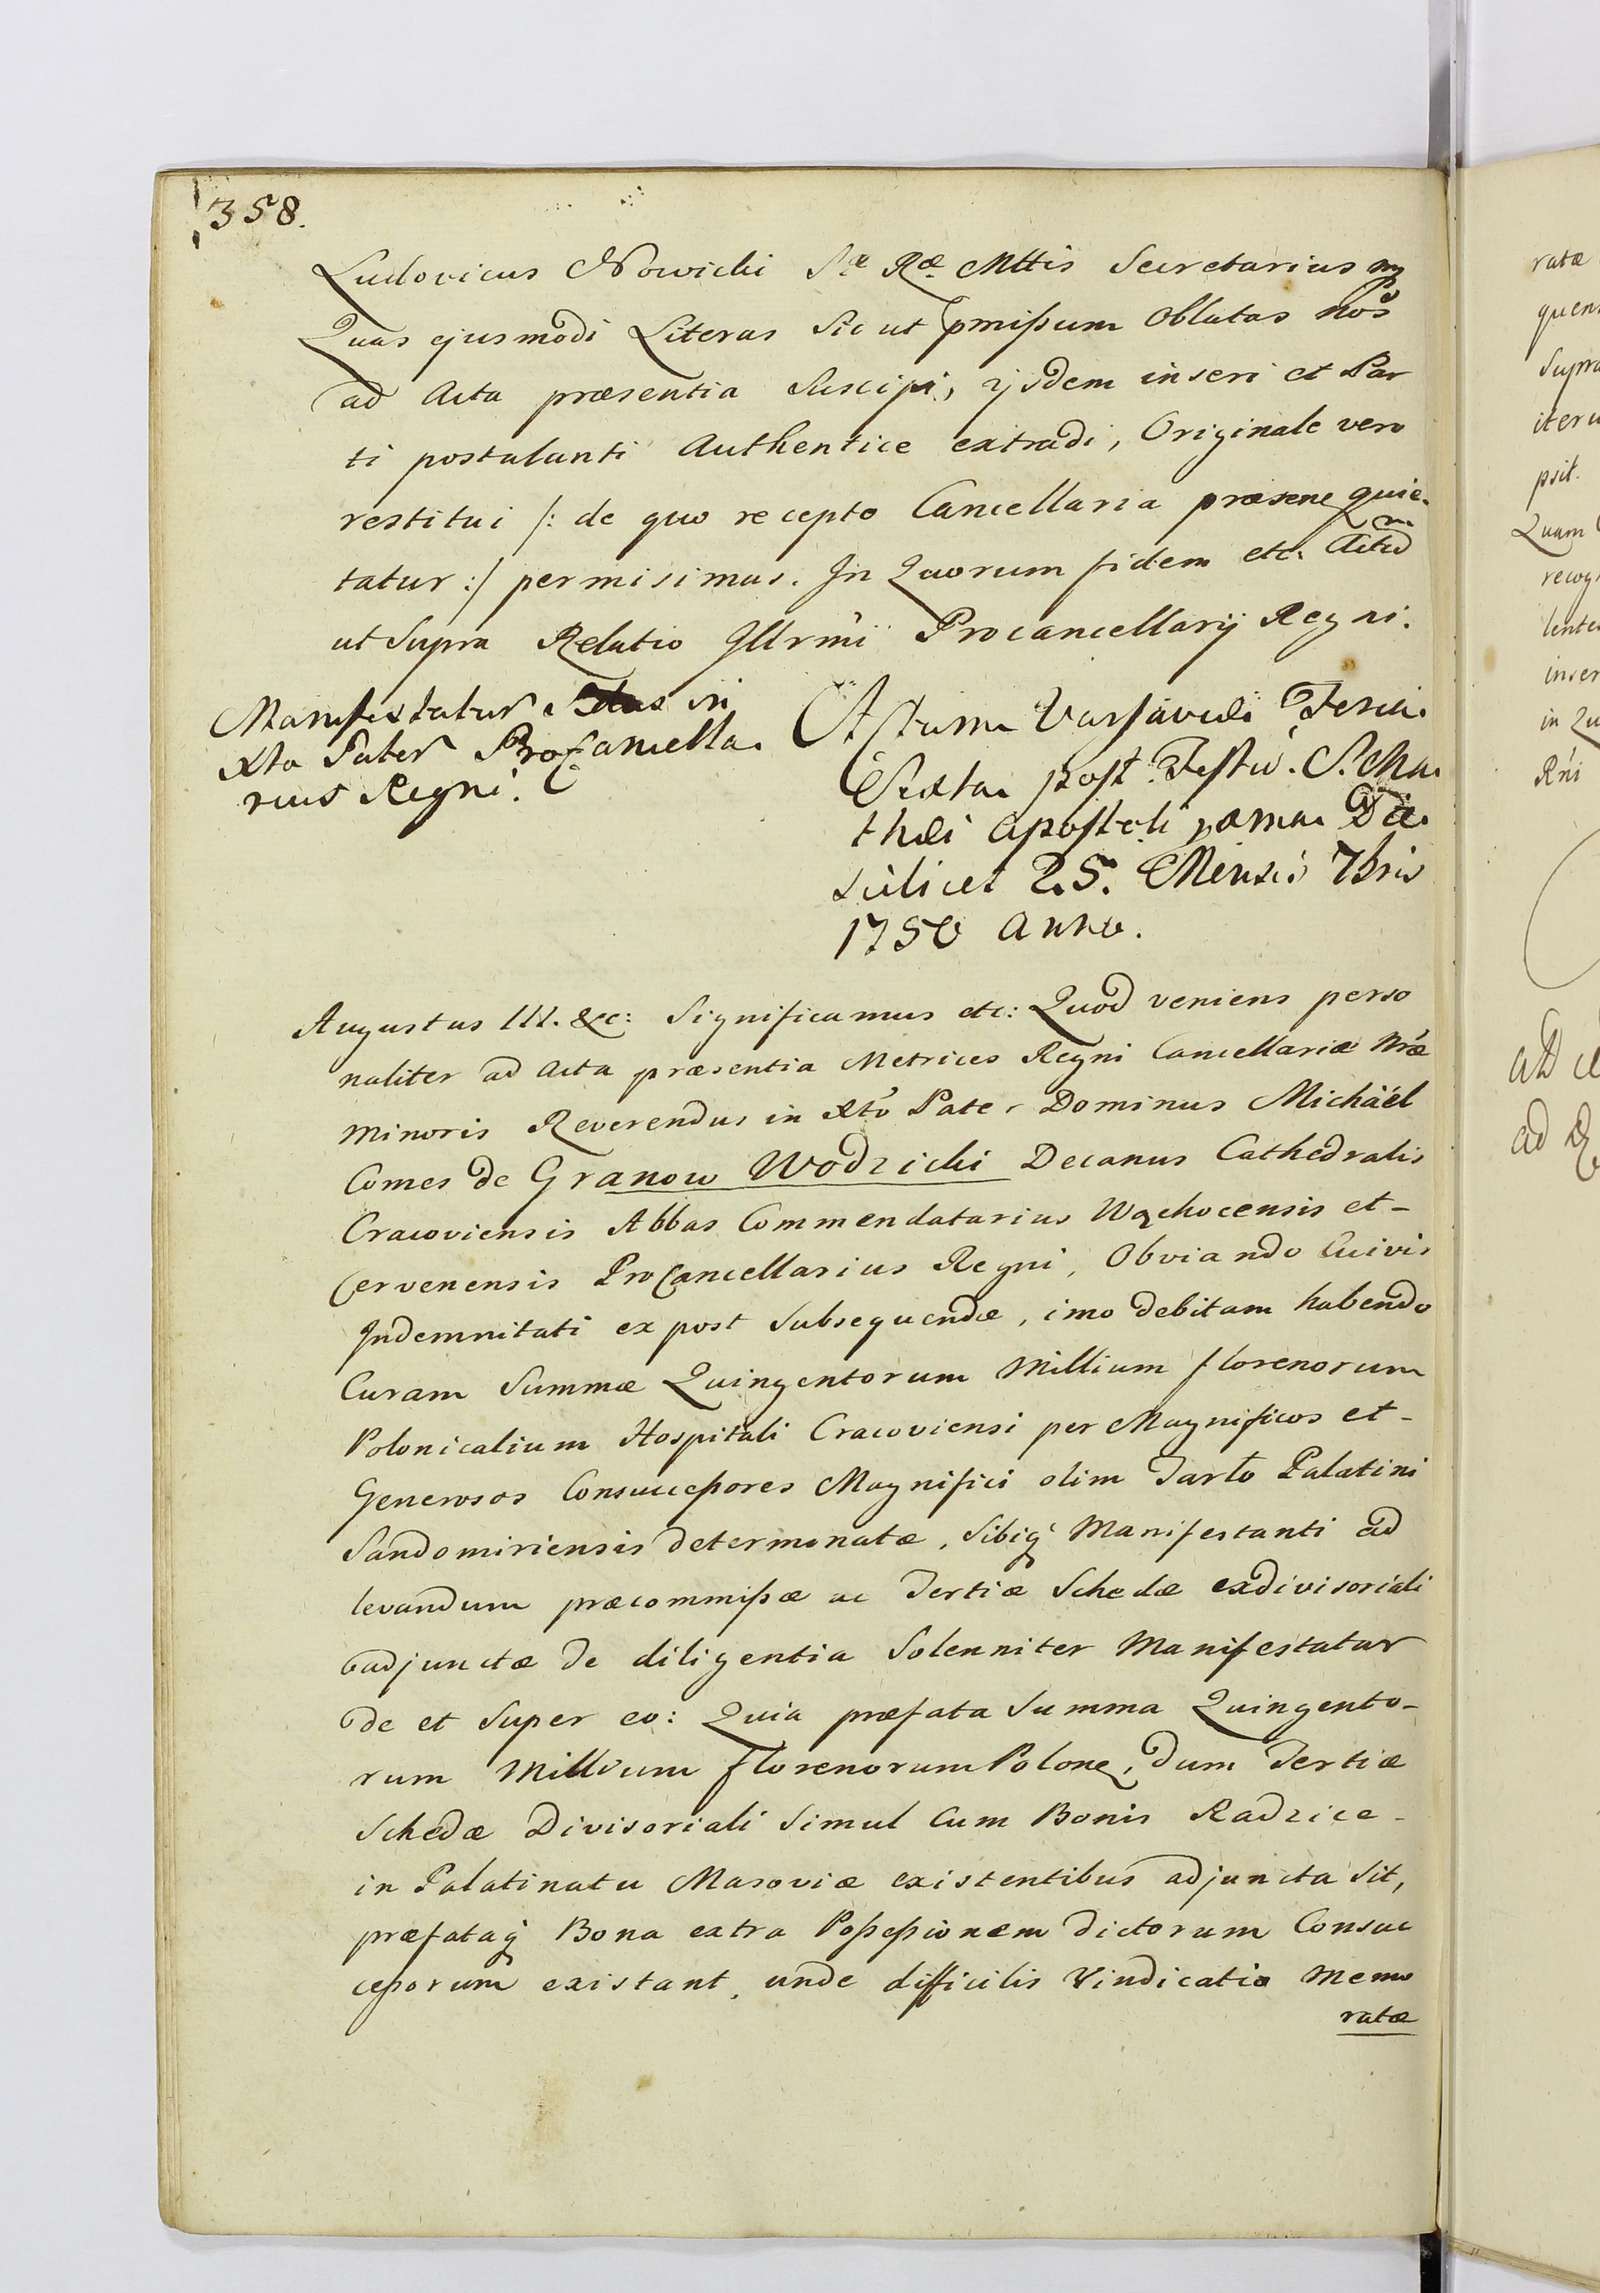 358.
Ludovicus Nowicki Sæ Ræ Mttis Secretarius mp
Quas ejusmodi Literas Sic ut pmißum Oblatas Nos
ad Acta præsentia Suscipi, ijsdem inseri et Par
ti postulanti Authentice extradi, Originale vero
restitui /: de quo recepto Cancellaria præsens quie-
tatur :/ permisimus. In Quorum fidem etc. Actu
ut Supra Relatio Illrmi Procancellarij Regni.
Manifestatur in
Xto Pater Procancella-
rius Regni.
Actum Varsaviæ Feria
Sexta post Festu. S. Ma-
thæi Apostoli Die
scilicet 25. Mensis 7bris
1750 Anno.
Augustus III. &c: Significamus etc: Quod veniens perso
naliter ad Acta præsentia Metrices Regni Cancellariæ Nræ
Minoris Reverendus in Xto Pater Dominus Michaël
Comes de Granow Wodzicki Decanus Cathedralis
Cracoviensis Abbas Commendatarius Wąchocensis et-
Cervenensis ProCancellarius Regni, Obviando Cuivis
Indemnitati ex post Subsequendæ, imo debitam habendo
Curam Summæ Quingentorum Millium florenorum
Polonicalium Hospitali Cracoviensi per Magnificos et-
Generosos Consuccessores Magnifici olim Tarło Palatini
Sandomiriensis determinatæ, Sibiq Manifestanti ad
levandum præcommißæ ac Tertiæ Schedæ exdivisoriali
adjunctæ de diligentia Solenniter Manifestatur
de et Super eo: Quia præfata Summa Quingento-
rum Millium florenorum Polon, dum Tertiæ
Schedæ Divisoriali Simul Cum Bonis Radzice-
in Palatinatu Masoviæ existentibus adjuncta Sit,
præfataq Bona extra Poßeßionem dictorum Consuc
ceßorum existant, unde difficilis Vindicatio Memo
ratæ
ratæ
quens
Supra
iteru
psit.
Quam
recog
lente
inser
in Qu
Rni
ad